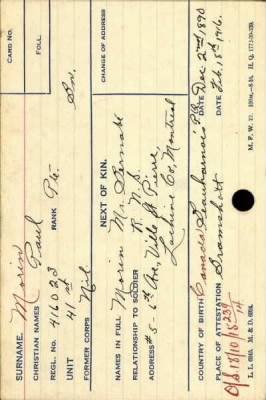 CARD NO.
FOLL.
SURNAME. Morin
CHRISTIAN NAMES Paul
REGL. NO. 416023 RANK Pte.
UNIT 41st Bn.
FORMER CORPS Nil
CHANGE OF ADDRESS
NEXT OF KIN.
NAMES IN FULL Morin Mr.
RELATIONSHIP TO SOLDIER
ADDRESS #5 - 6th Ave, Ville St Pierre,
Lachine Co, Montreal
COUNTRY OF BIRTH Canada, Beauharnois P.Q. DATE Dec 2nd 1890
PLACE OF ATTESTATION Bramshott DATE Feb. 18th 1916.
M. F. W. 22.
H. Q. 1772-39-339.